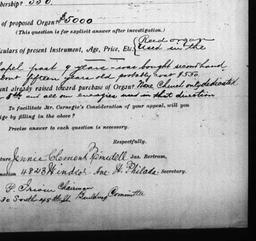 mbership? 550.
of proposed Organ? $5000
(This question is for explicit answer after investigation.)
culars of present Instrument, Age, Price, Etc. { Reed organ
used in the
apel past 9 years was bought secondhand
about fifteen years old probably cost $550
ent already raised toward purchase of Organ. New Church only dedicated
8th and all our energies used in that direction
To facilitate Mr. Carnegie's Consideration of your appeal, will you
ige by filling in the above?
Precise answer to each question is necessary.
Respectfully,
Jas. Bertram,
Secretary.
ature Jennie Clement
4823 Windsor Ave. Philada
Chairman
South 45th St Building Committee